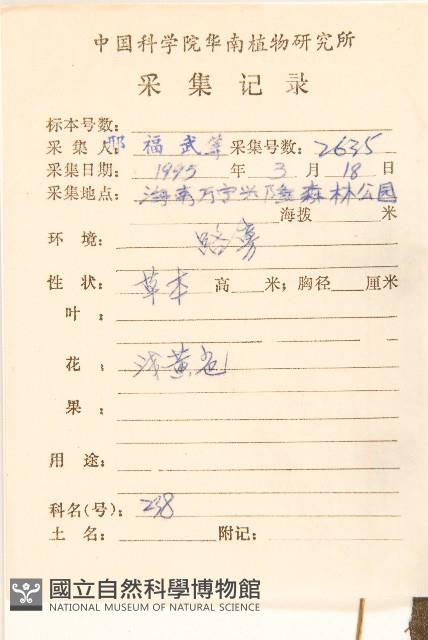 中国科学院华南植物研究所
采集记录
标本号数:
采集人: 邢福武等 采集号数: 2635
采集日期: 1995 年 3 月 18 日
采集地点: 海南万宁兴隆森林公园
海拨 米
环境: 路旁
性状: 草本 高 米; 胸径 厘米
叶:
花: 浅黄色
果:
用途:
科名(号): 238
土名: 附记:
國立自然科學博物館
NATIONAL MUSEUM OF NATURAL SCIENCE